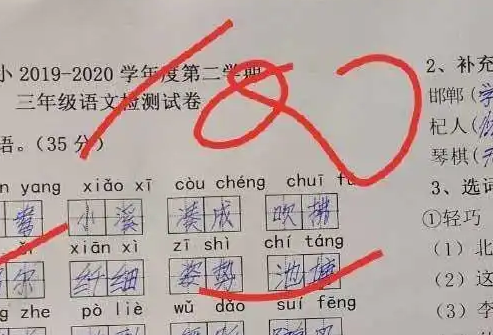 小 2019-2020 学年度第二学期
三年级语文检测试卷
语。（35 分）
yang xiǎo xī còu chéng chuī
鸯 小溪 凑成 吹拂
xiān xì zī shì chí táng
尔 纤细 姿势 池塘
zhe pò liè wǔ dǎo suí fēng
2、补充
邯郸（学
杞人（
琴棋（
3、选词
①轻巧
（1）北
（2）这
（3）李